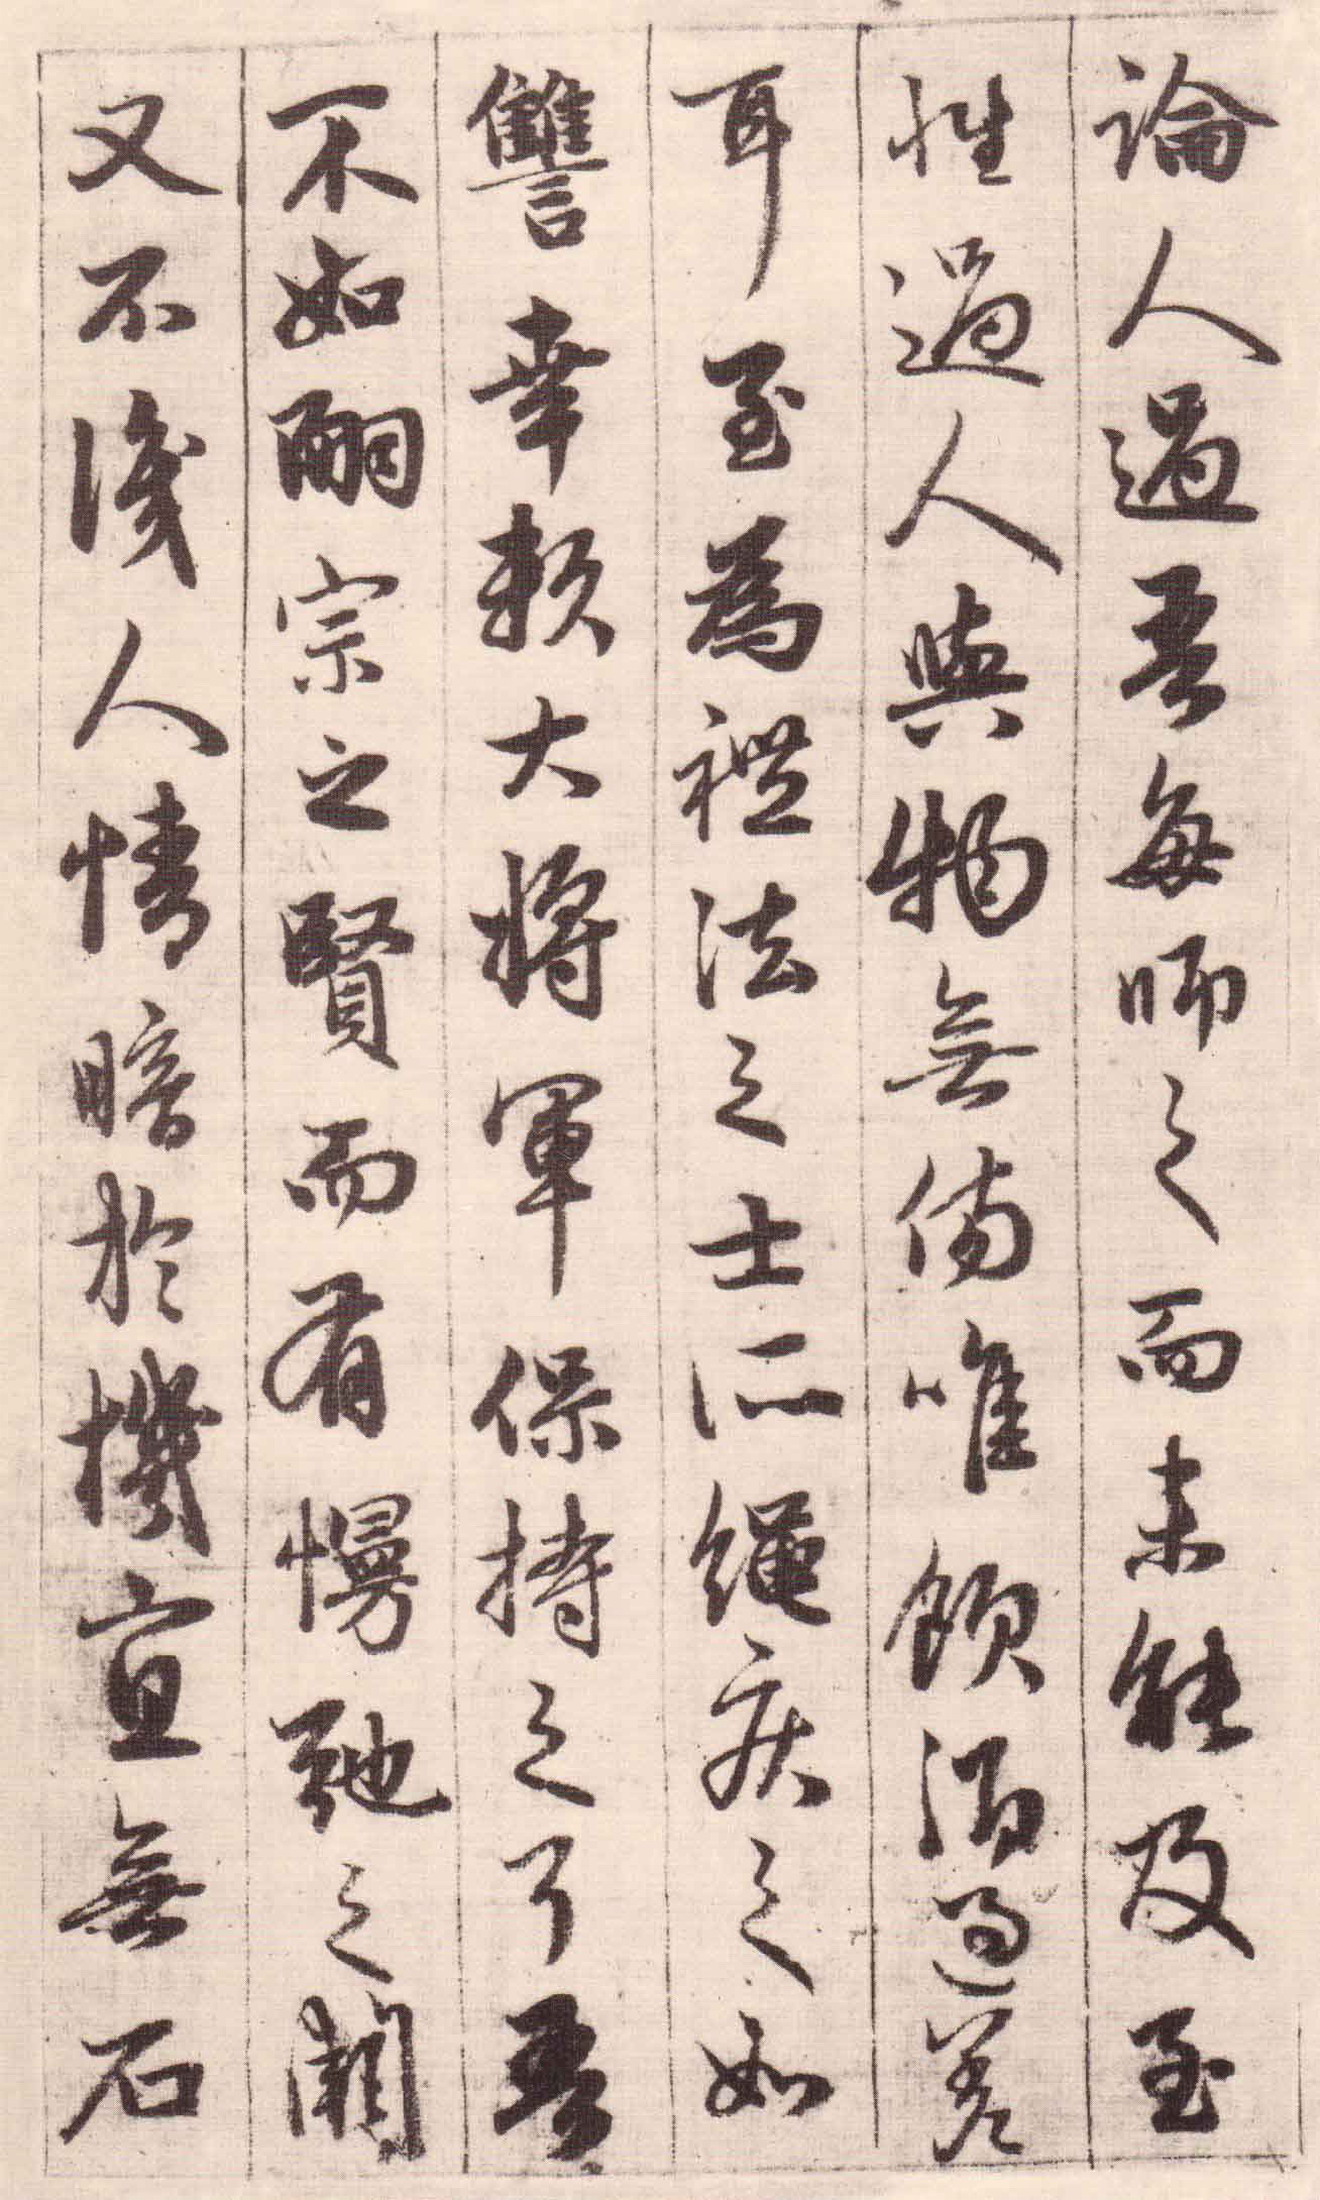 論人過吾每師之而未能及至
性過人與物無傷唯飲酒過差
耳至為禮法之士所繩疾之如
讐幸頼大將軍保持之耳吾
不如嗣宗之賢而有慢弛之闕
又不識人情暗於機宜無石